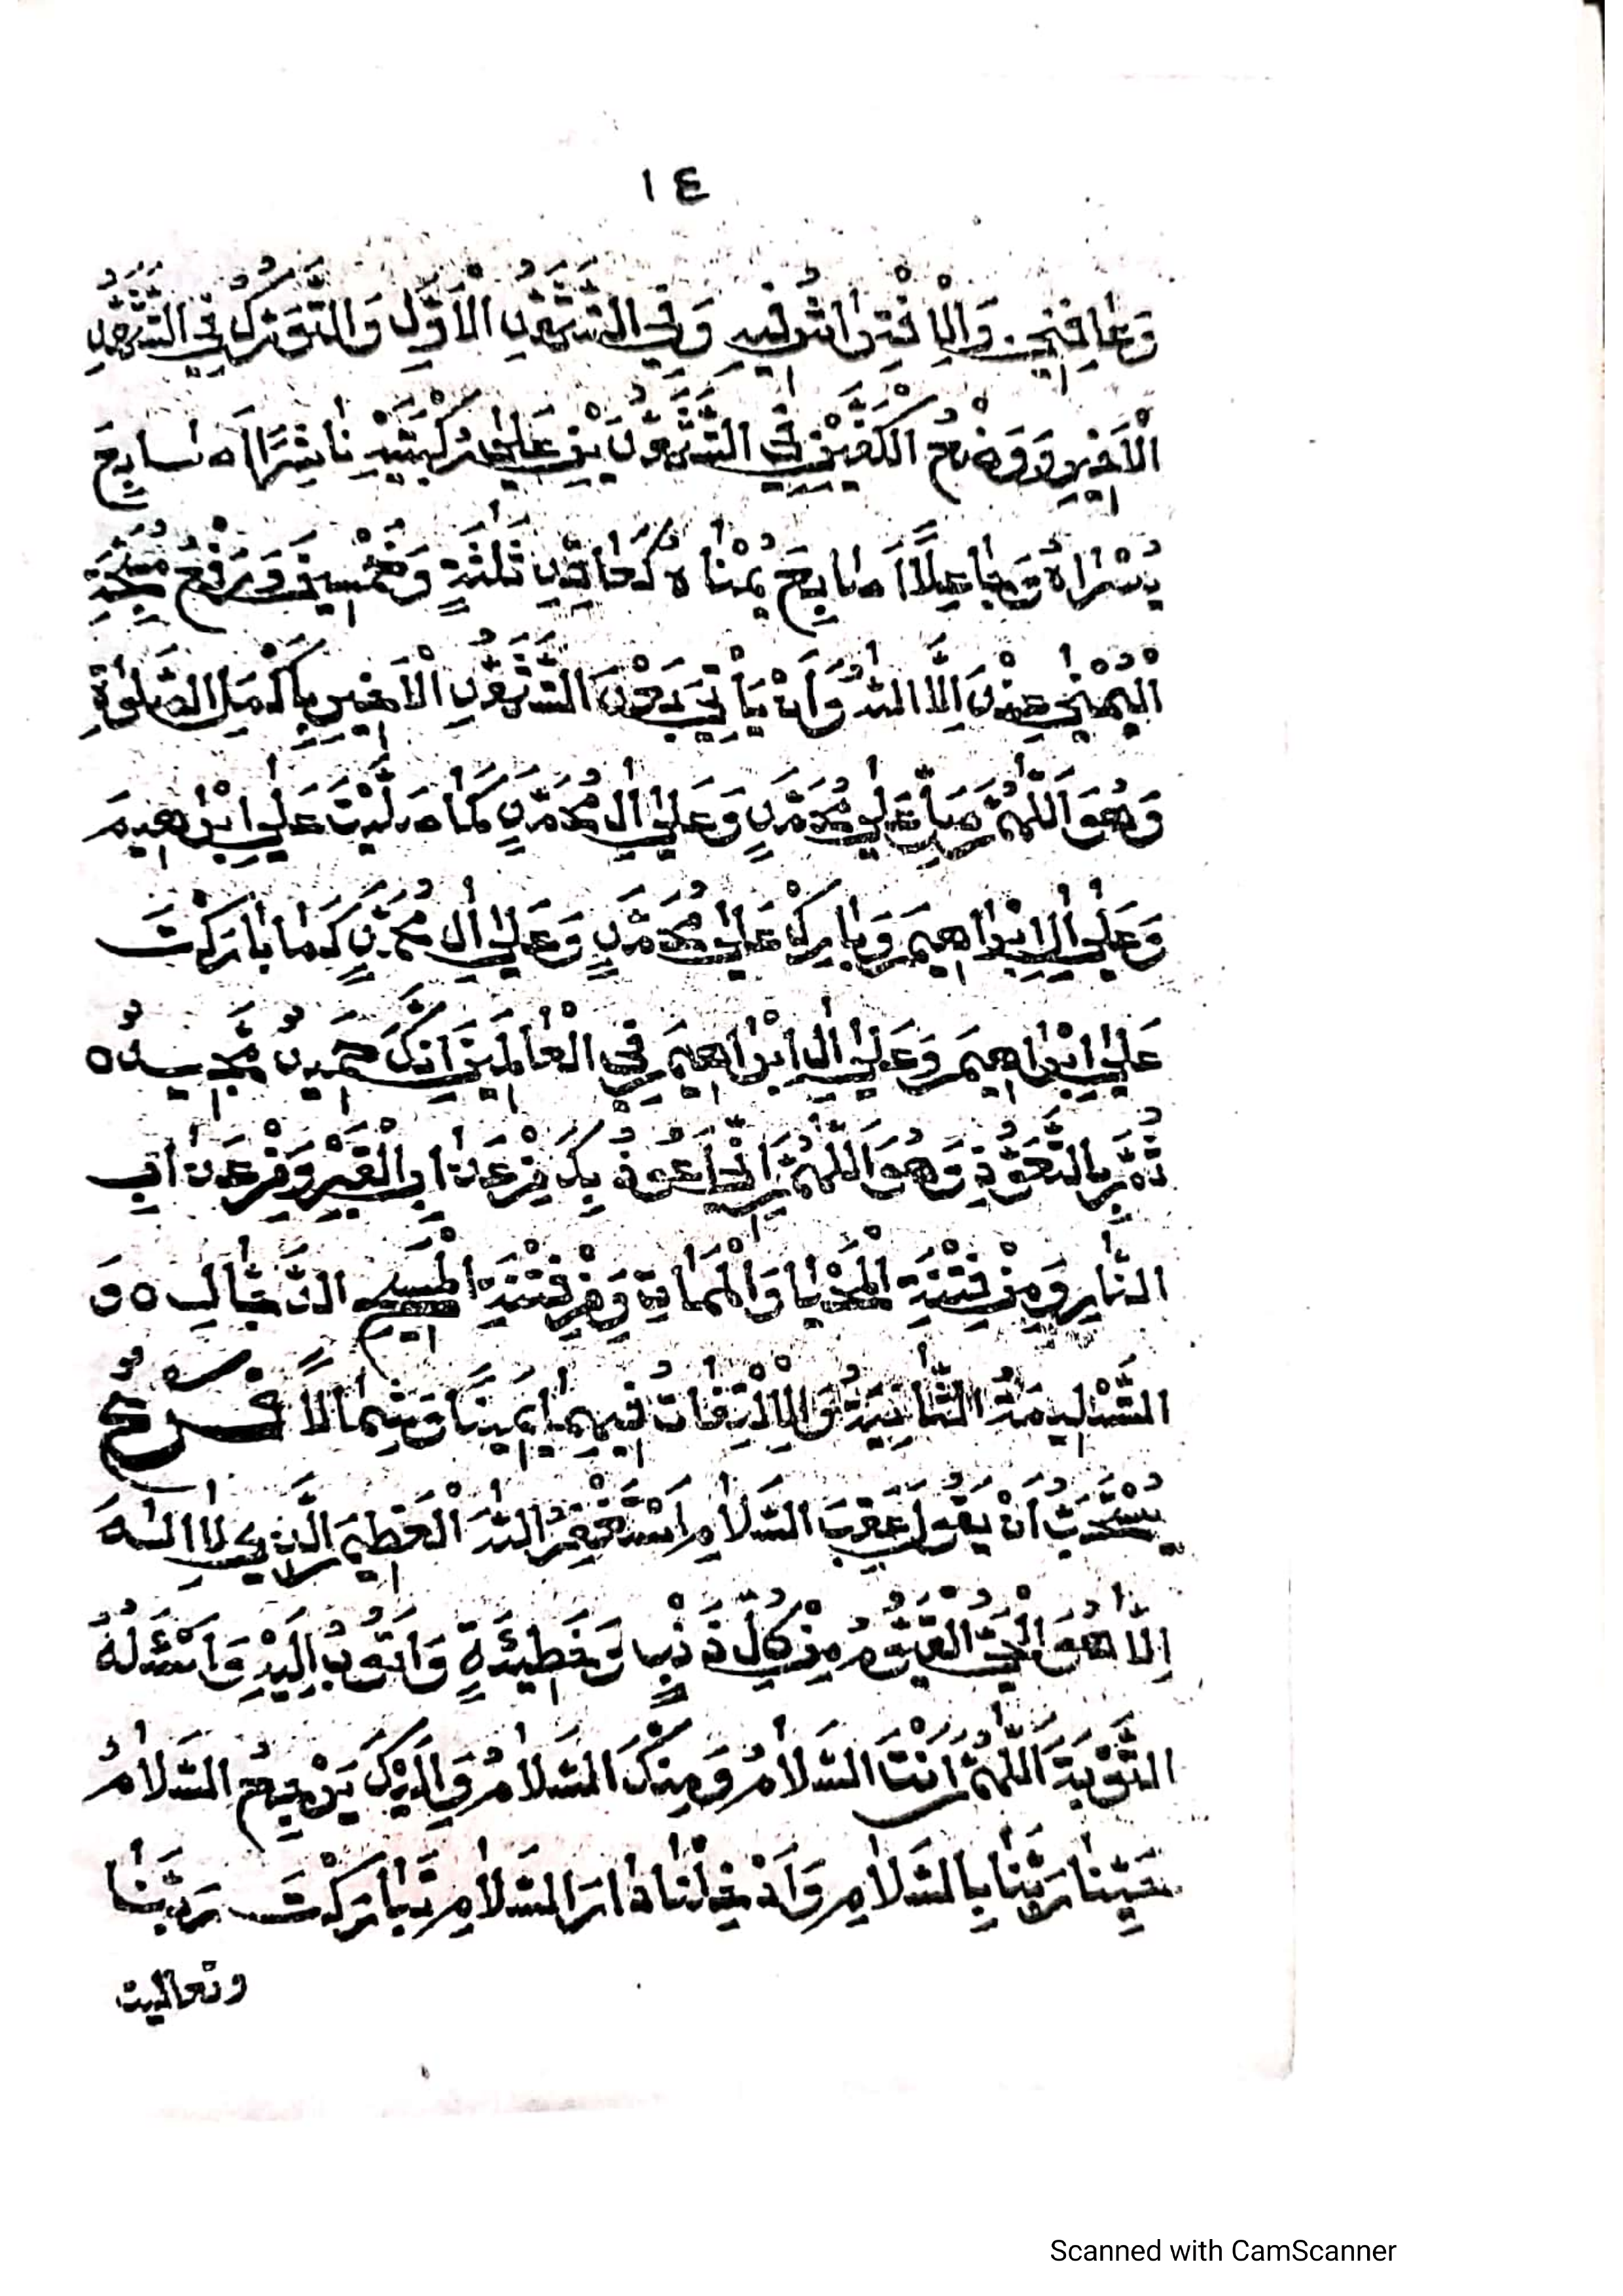 ١٤
وَعَافِنِي وَالْاِفْتِرَاشُ فِيهِ وَفِي التَّشَهُّدِ الْأَوَّلِ وَالتَّوَرُّكُ فِي التَّشَهُّدِ
الْأَخِيرِ وَوَضْعُ الْكَفَّيْنِ فِي التَّشَهُّدَيْنِ عَلَى رُكْبَتَيْهِ نَاشِرًا أَصَابِعَ
يُسْرَاهُ وَجَاعِلًا أَصَابِعَ يُمْنَاهُ كَعَاقِدِ ثَلٰثَةٍ وَخَمْسِينَ وَرَفْعُ مُسَبِّحَةِ
الْيُمْنٰى عِنْدَ اِلَّا اللّٰهُ وَأَنْ يَأْتِيَ بَعْدَ التَّشَهُّدِ الْأَخِيرِ بِأَكْمَلِ الصَّلٰوةِ
وَهُوَ اَللّٰهُمَّ صَلِّ عَلٰى مُحَمَّدٍ وَعَلٰى اٰلِ مُحَمَّدٍ كَمَا صَلَّيْتَ عَلٰى اِبْرٰهِيمَ
وَعَلٰى اٰلِ اِبْرَاهِيمَ وَبَارِكْ عَلٰى مُحَمَّدٍ وَعَلٰى اٰلِ مُحَمَّدٍ كَمَا بَارَكْتَ
عَلٰى اِبْرَاهِيمَ وَعَلٰى اٰلِ اِبْرَاهِيمَ فِي الْعَالَمِينَ اِنَّكَ حَمِيدٌ مَّجِيدٌ ه
ثُمَّ بِالتَّعَوُّذِ وَهُوَ اَللّٰهُمَّ اِنِّي اَعُوذُ بِكَ مِنْ عَذَابِ الْقَبْرِ وَمِنْ عَذَابِ
النَّارِ وَمِنْ فِتْنَةِ الْمَحْيَا وَالْمَمَاتِ وَمِنْ فِتْنَةِ الْمَسِيحِ الدَّجَّالِ ه وَ
التَّسْلِيمَةُ الثَّانِيَةُ وَالْاِلْتِفَاتُ فِيهِمَا يَمِينًا وَشِمَالًا فَــرْعٌ
يُسْتَحَبُّ أَنْ يَقُولَ عَقِبَ السَّلَامِ اَسْتَغْفِرُ اللّٰهَ الْعَظِيمَ الَّذِي لَا اِلٰهَ
اِلَّا هُوَ الْحَيُّ الْقَيُّومُ مِنْ كُلِّ ذَنْبٍ وَخَطِيئَةٍ وَاَتُوبُ اِلَيْهِ وَاَسْئَلُهُ
التَّوْبَةَ اَللّٰهُمَّ اَنْتَ السَّلَامُ وَمِنْكَ السَّلَامُ وَاِلَيْكَ يَرْجِعُ السَّلَامُ
حَيِّنَا رَبَّنَا بِالسَّلَامِ وَاَدْخِلْنَا دَارَ السَّلَامِ تَبَارَكْتَ رَبَّنَا
وتعاليت
Scanned with CamScanner